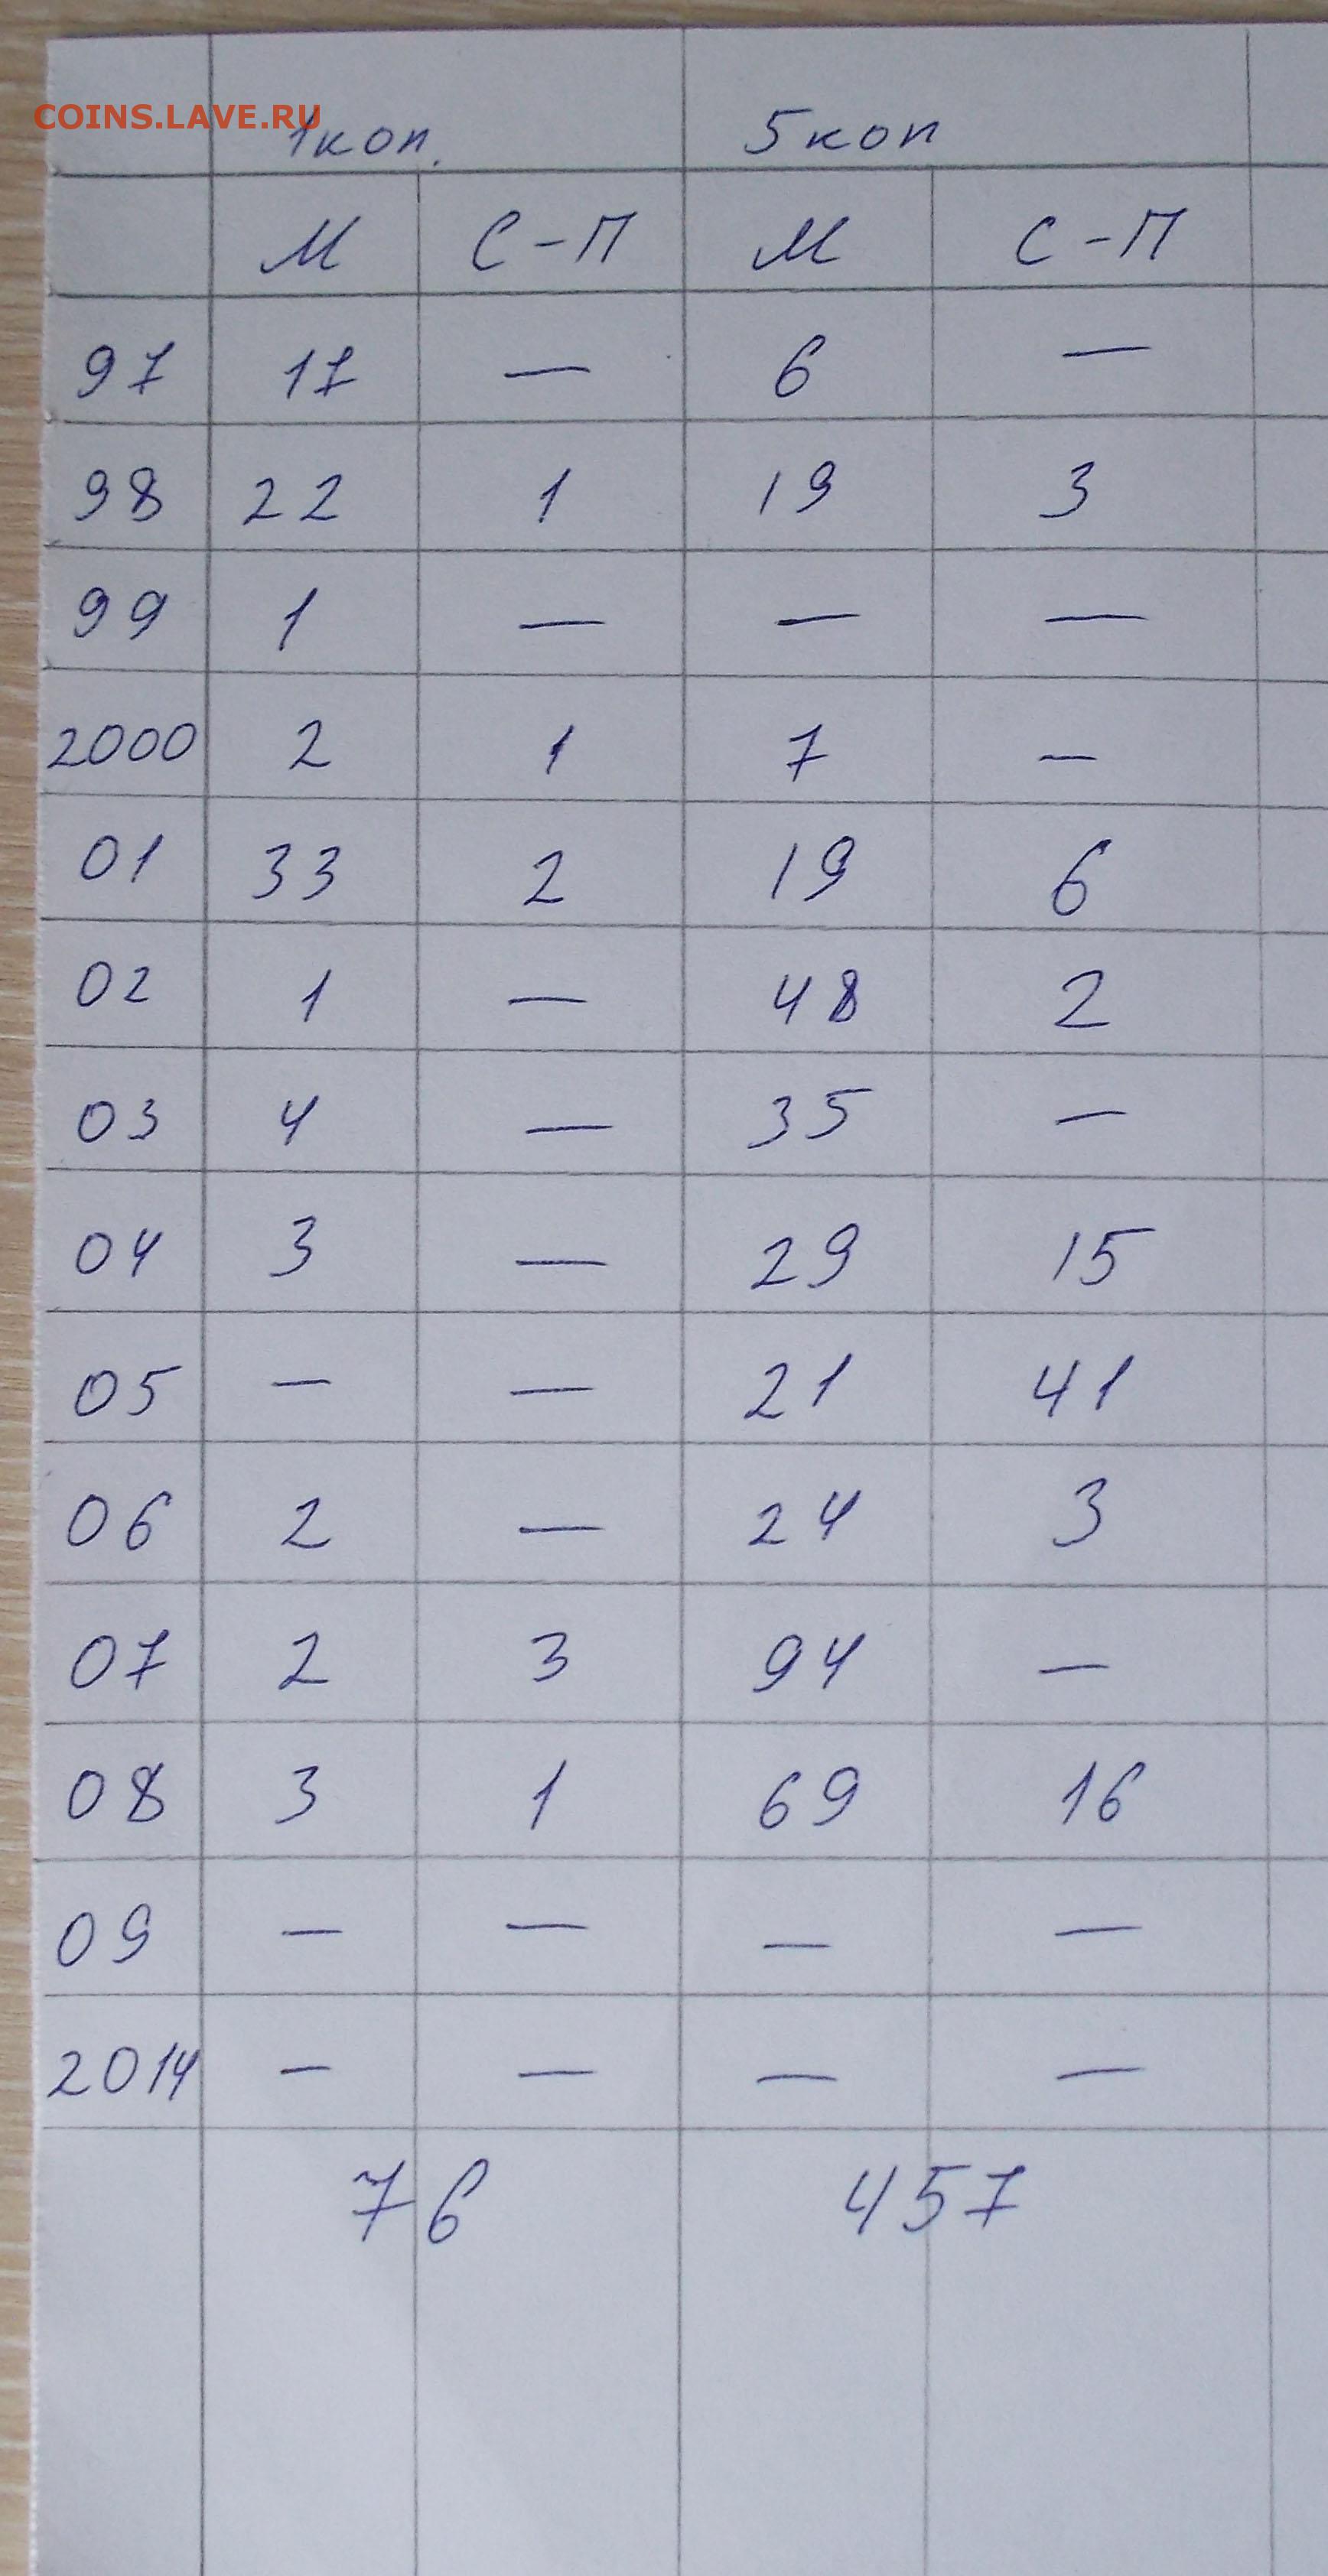 COINS.LAVE.RU
1коп. 5коп
М С-П М С-П
97 17 — 6 —
98 22 1 19 3
99 1 — — —
2000 2 1 7 —
01 33 2 19 6
02 1 — 48 2
03 4 — 35 —
04 3 — 29 15
05 — — 21 41
06 2 — 24 3
07 2 3 94 —
08 3 1 69 16
09 — — — —
2014 — — — —
76 457